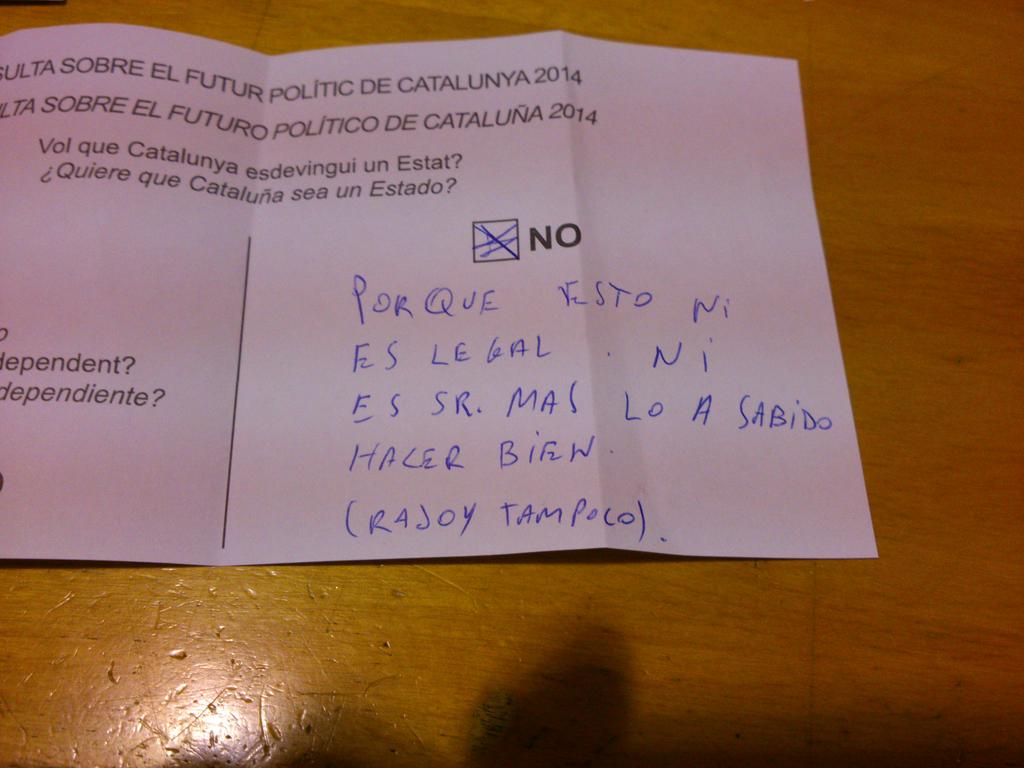 SULTA SOBRE EL FUTUR POLÍTIC DE CATALUNYA 2014
LTA SOBRE EL FUTURO POLÍTICO DE CATALUÑA 2014
Vol que Catalunya esdevingui un Estat?
¿Quiere que Cataluña sea un Estado?
NO
PORQUE ESTO NI
ES LEGAL. NI
ES SR. MAS LO A SABIDO
HACER BIEN.
(RAJOY TAMPOCO).
o
dependent?
dependiente?